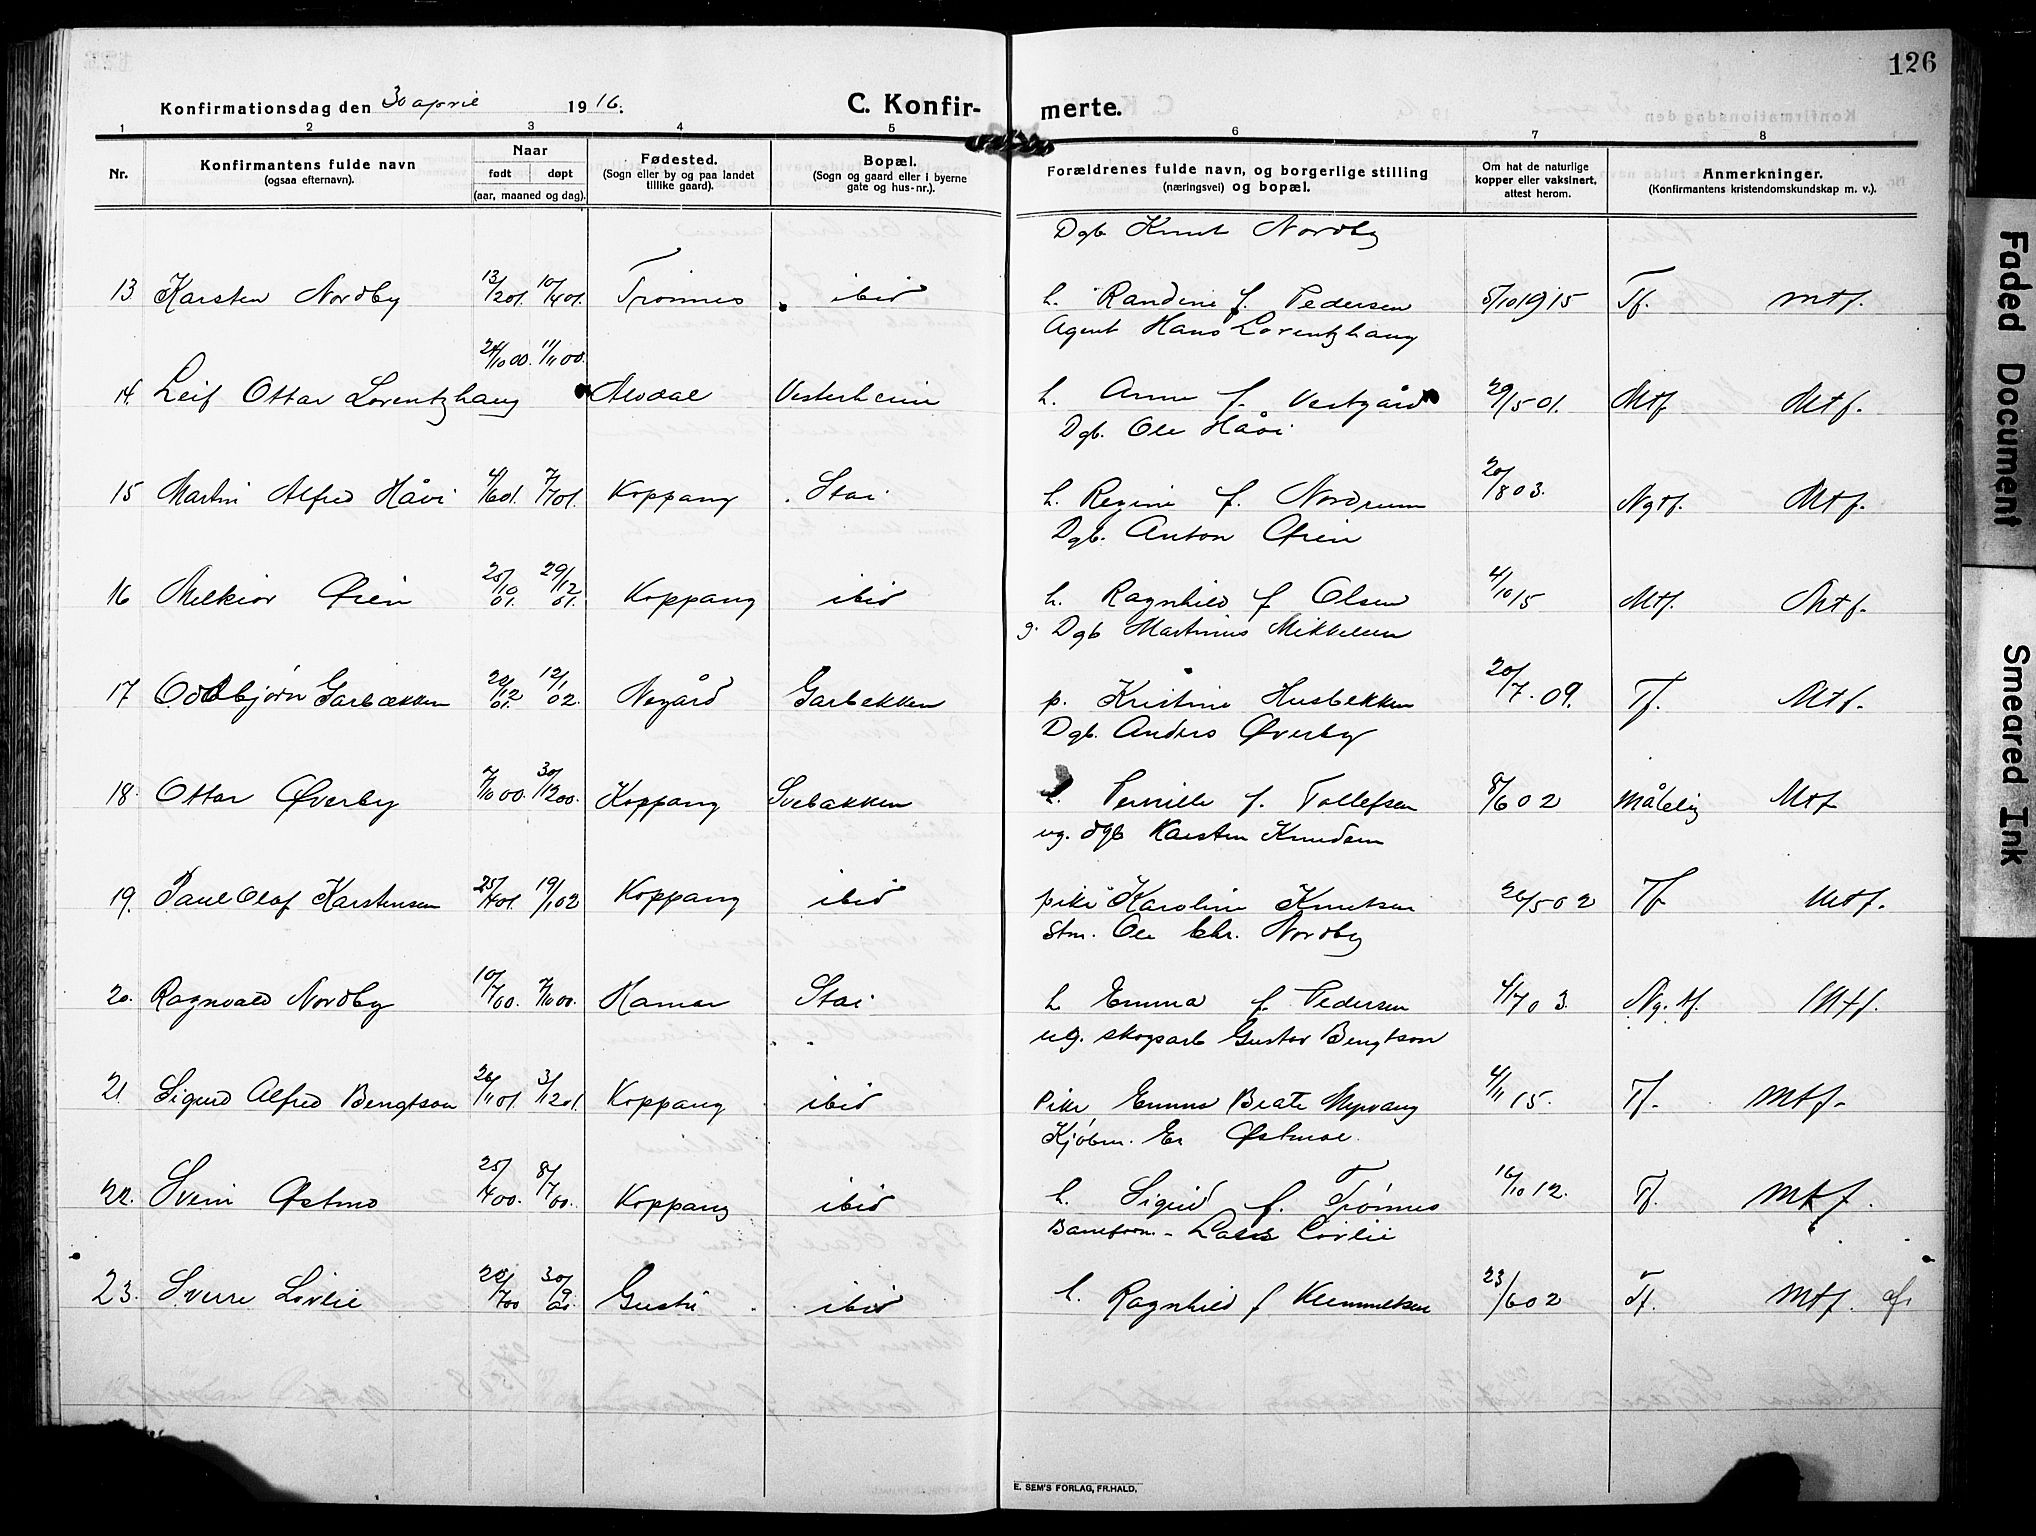 126
Konfirmationsdag den 30 april 1916.
C. Konfir- merte.
1 2 3 4 5 6 7 8
Nr.
Konfirmantens fulde navn
(ogsaa efternavn).
Naar
født døpt
(aar, maaned og dag).
Fødested.
(Sogn eller by og paa landet
tillike gaard).
Bopæl.
(Sogn og gaard eller i byerne
gate og hus-nr.).
Forældrenes fulde navn, og borgerlige stilling
(næringsvei) og bopæl.
Om hat de naturlige
kopper eller vaksinert,
attest herom.
Anmerkninger.
(Konfirmantens kristendomskundskap m. v.).
Dgb Knut Nordby
13 Karsten Nordby 13/2 01. 10/4 01. Trønnes ibid h. Randine f. Pedersen 5/10 1915 Tf. Mtf.
Agent Hans Lorentzhaug
14. Leif Ottar Lorentzhaug 24/10 00. 11/11 00. Alvdal Vesterheim h. Anne f. Vestgård 29/5 01. Mtf Mtf.
Dgb. Ole Håvi
15 Martin Alfred Håvi 4/6 01. 7/7 01. Koppang Stai h. Regine f. Nordrum 20/8 03. Ngtf. Mtf.
Dgb. Anton Øien
16 Melkior Øien 25/10 01. 29/12 01. Koppang ibid h. Ragnhild f Olsen 4/10 15 Mtf. Mtf.
g. Dgb Martinus Mikkelsen
17 Oddbjørn Garbækken 20/12 01. 12/1 02. Negård Garbekken p. Kristine Husbekken 20/7. 09. Tf. Mtf.
Dgb. Anders Øverby
18. Ottar Øverby 7/10 00. 30/12 00. Koppang Svebakken h. Pernille f. Tollefsen 8/6 02 Målelig Mtf
ug. dgb Karsten Knudsen
19. Paul Olaf Karstensen 25/4 01. 19/1 02 Koppang ibid pike Karoline Knutsen 26/5 02 Tf Mtf.
Stm. Ole Chr. Nordby
20. Ragnvald Nordby 10/7 00. 7/10 00. Hamar Stai h Emma f. Pedersen 4/7 03. Ng. tf. Mtf.
ug. skogsarb Gustav Bengtson
21. Sigurd Alfred Bengtson 26/11 01. 3/12 01. Koppang ibid Pike Emma Beate Myrvang 4/11 15. Tf. Mtf.
Kjøbm. Er Østmoe.
22. Svein Østmo 25/4 00. 8/7 00. Koppang ibid h. Sigrid f. Trønnes 16/10 12. Tf. Mtf.
Baneform. Lars Lövlie
23. Sverre Lövlie 20/7 00 30/9 00. Gusti ibid h. Ragnhild f Klemmetsen 23/6 02 Tf. Mtf. af.
E. SEM'S FORLAG, FR.HALD,
Faded Document
Smeared Ink